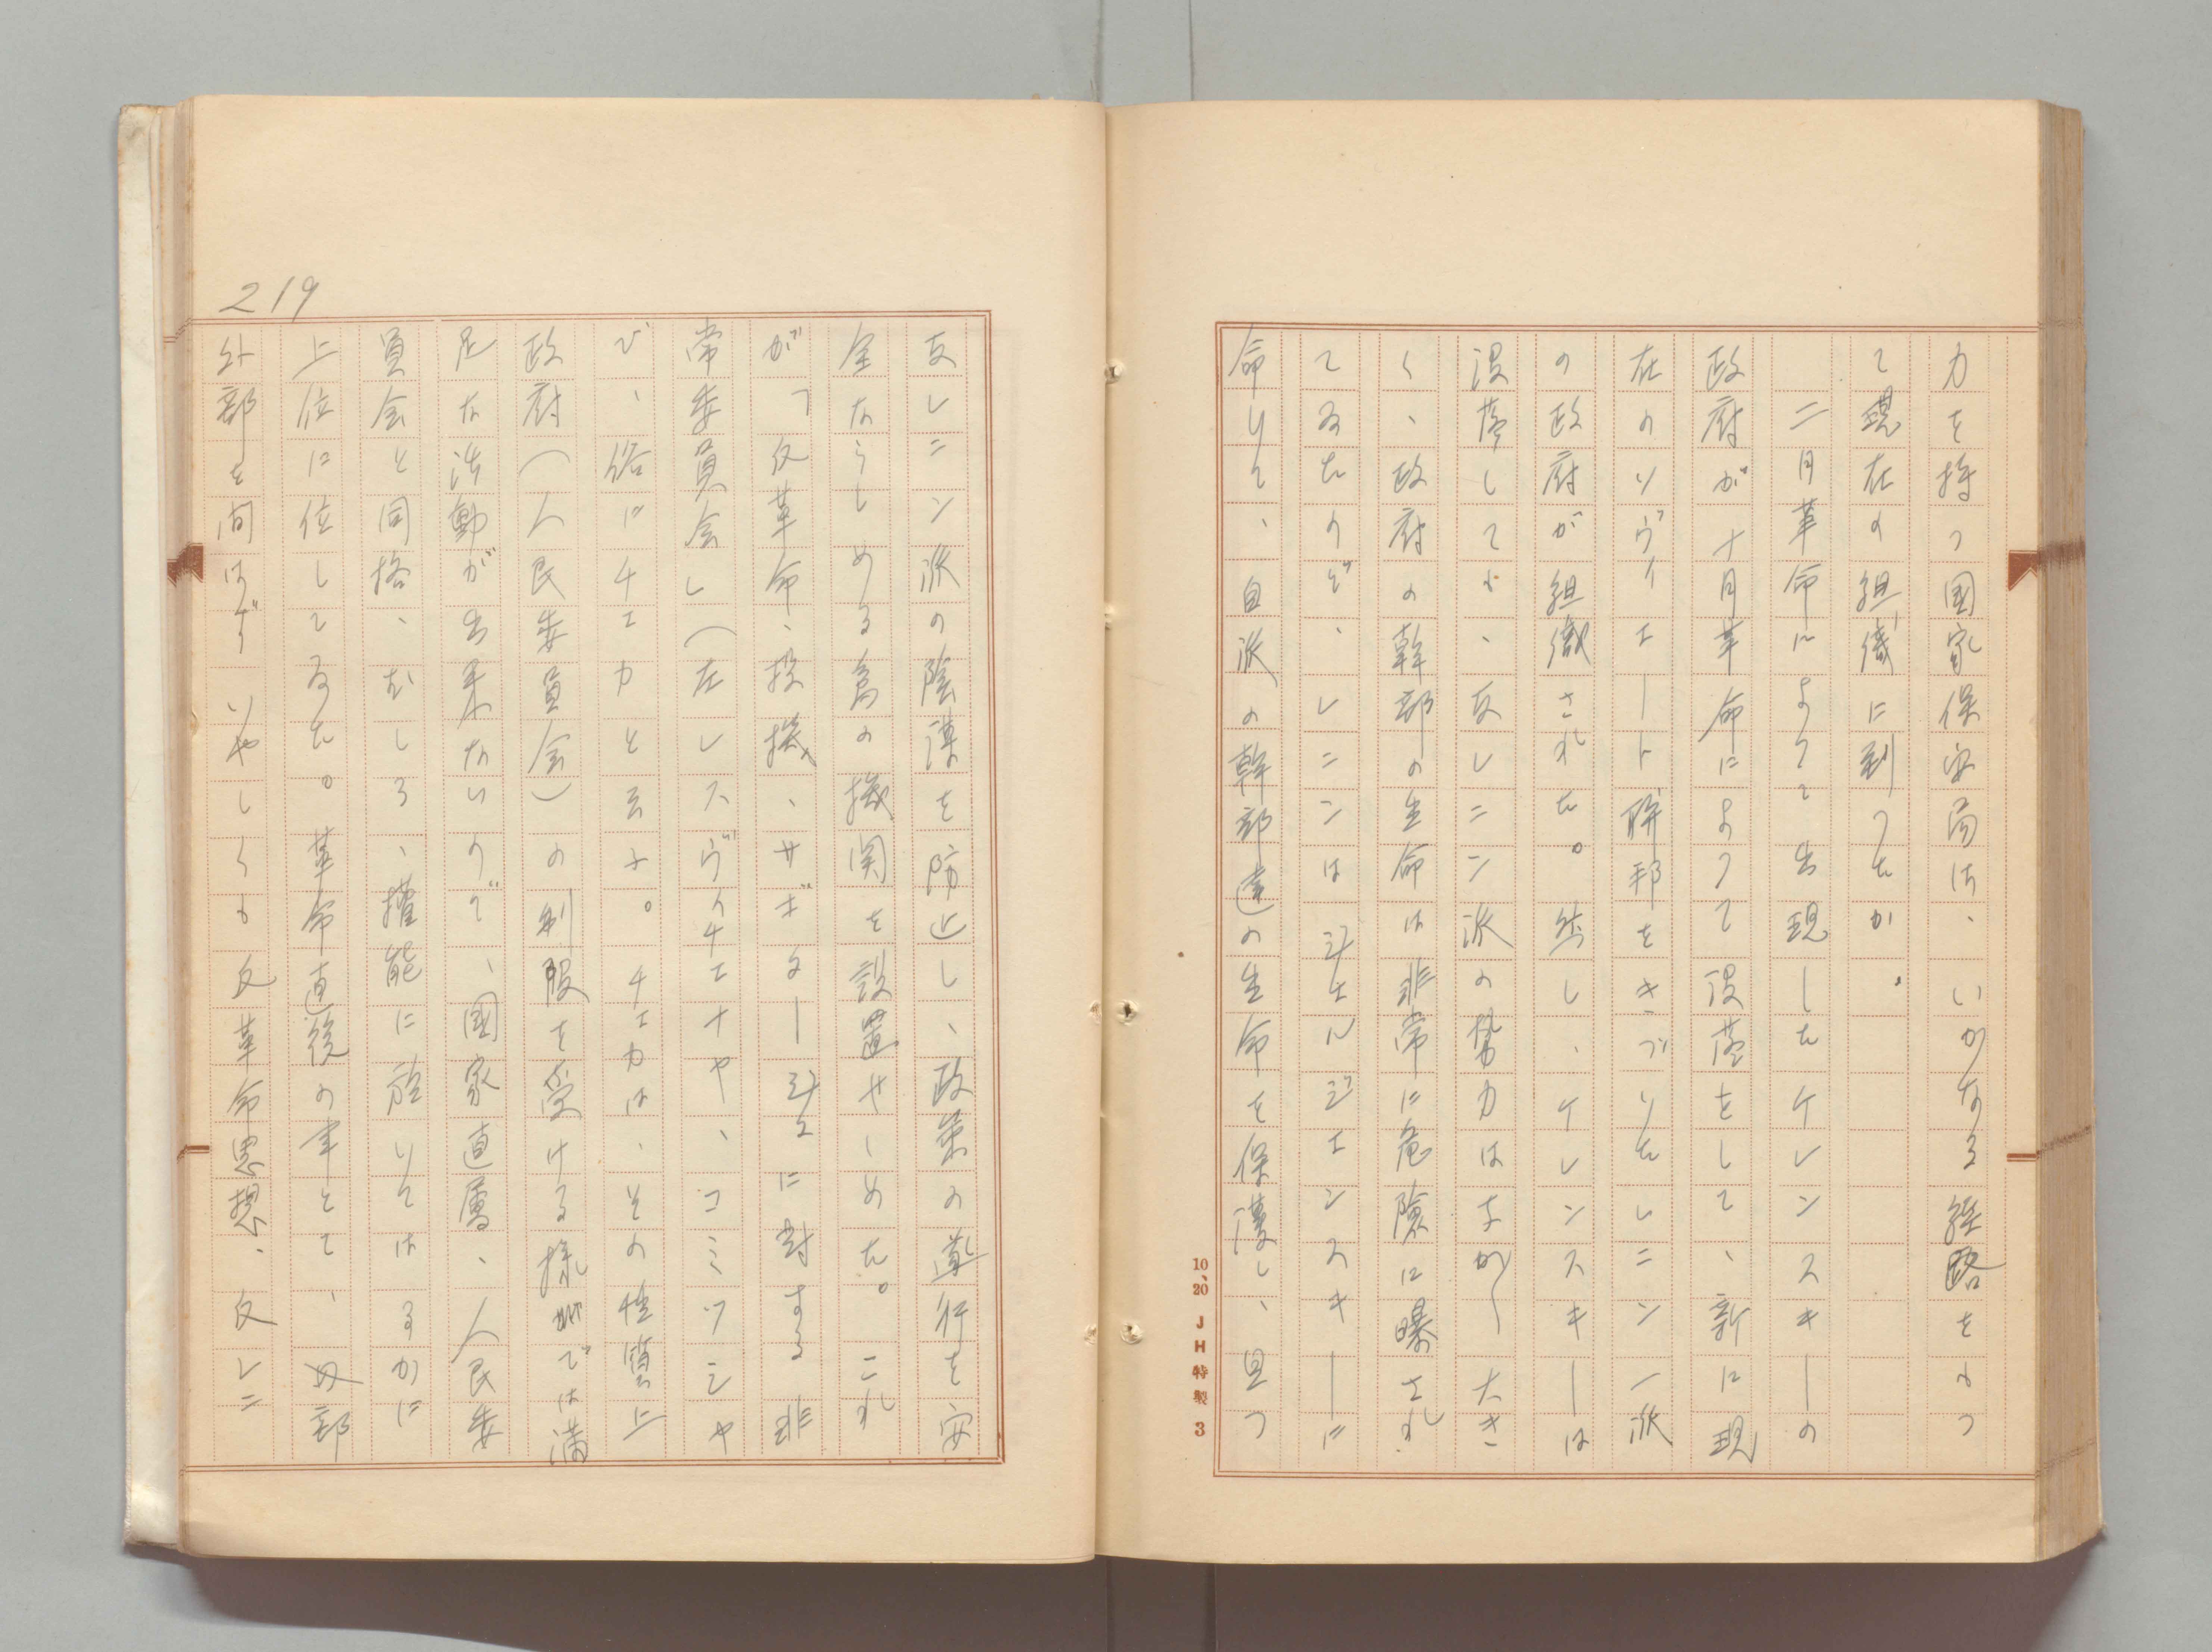 力を持つ国家保安局は、いかなる経路をもつ
て現在の組織に到つたか。
二月革命によつて出現したケレンスキーの
政府が十月革命によつて没落をして、新に現
在のソヴィエート聯邦をきづいたレニン一派
の政府が組織された。然し、ケレンスキーは
没落しても、反レニン派の勢力はなか〳〵大き
く、政府の幹部の生命は非常に危険に曝され
てゐたので、レニンはヂェルジェンスキーに
命じて、自派の幹部達の生命を保護し、且つ
219
反レニン派の陰謀を防止し、政策の遂行を安
全ならしめる為の機関を設置せしめた。これ
が「反革命、投機、サボターヂュに対する非
常委員会」(在レスヴィチエナヤ、コミツシヤ
び、俗にチエカと云ふ。チエカは、その性質上
政府(人民委員会)の制服を受ける様では満
足な活動が出来ないので、国家直属、人民委
員会と同格、むしろ、権能に於いてははるかに
上位に位してゐた。革命直後の事とて、内部
外部を問はず、いやしくも反革命思想、反レニ
10、20 JH特製 3